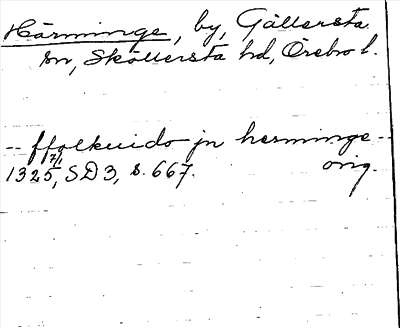 Härminge, by, Gällersta
sn, Sköllersta hd, Örebro l.
-- ffolkuido jn herminge --
7/1
1325, SD3, s. 667. orig.